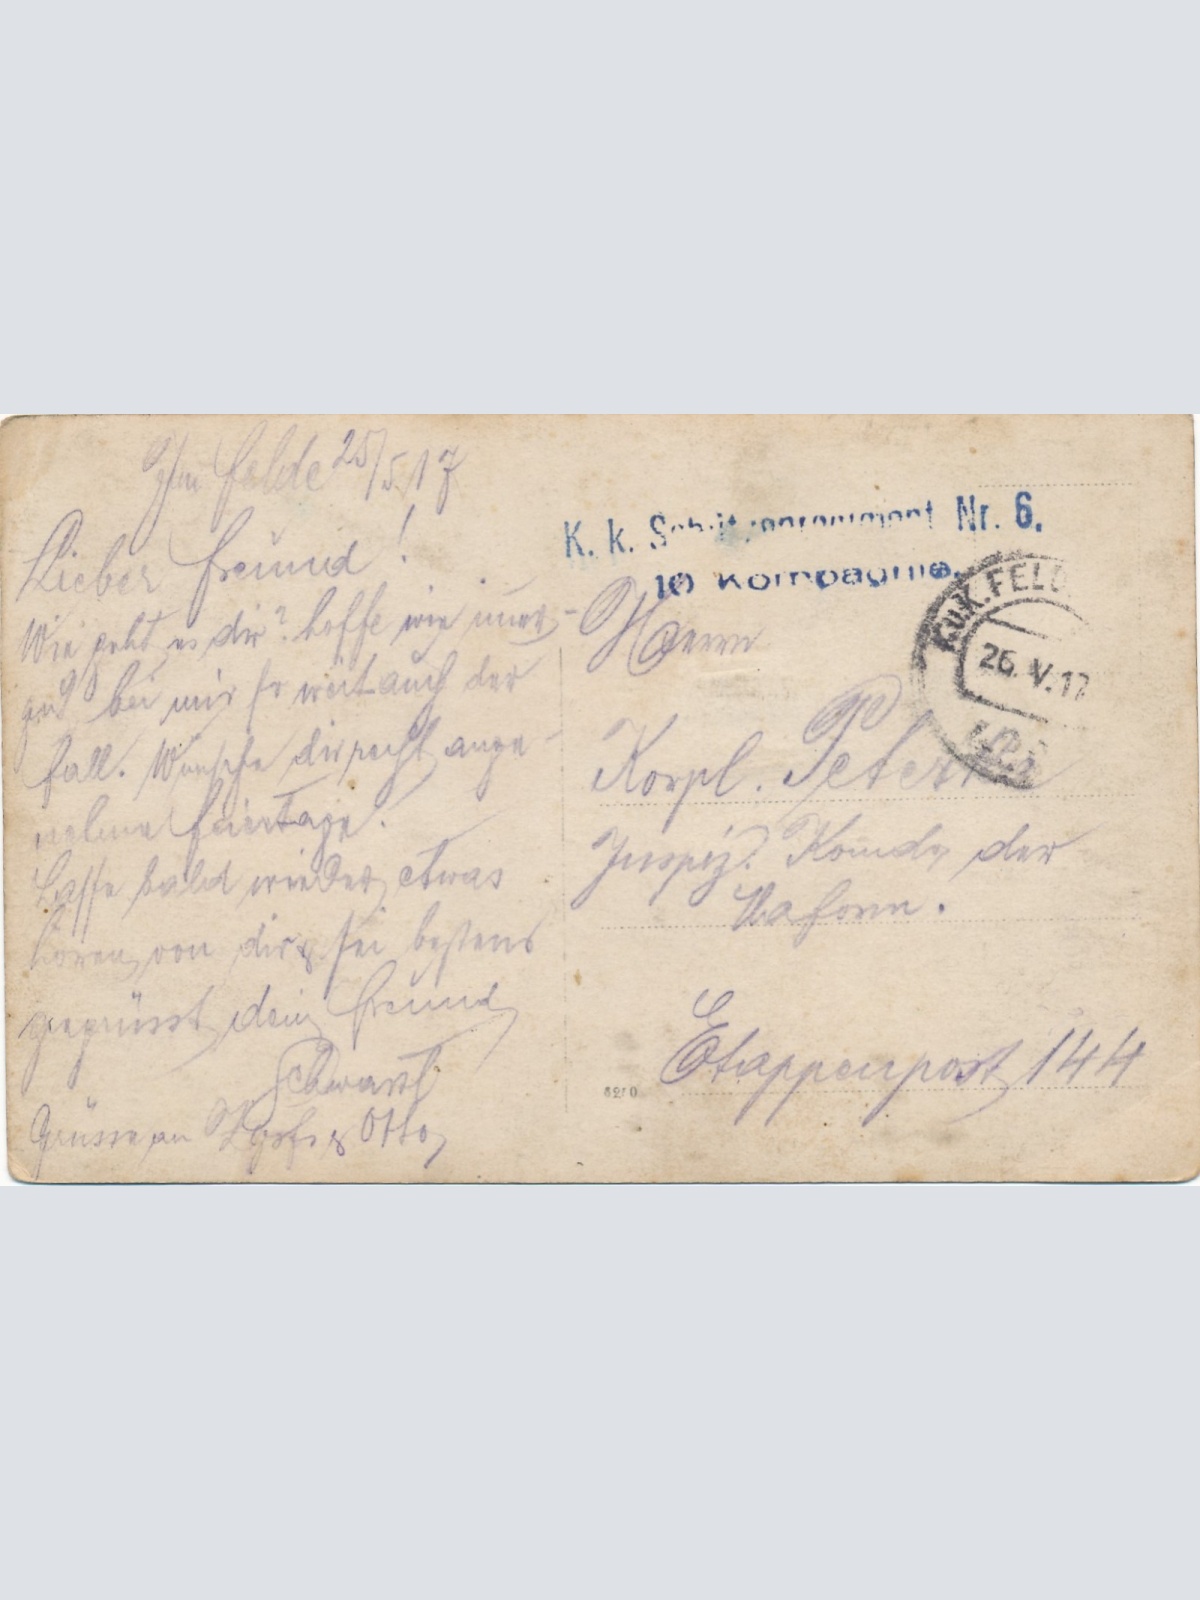 Im Felde 25/5 17
Lieber Freund!
Wie geht es dir? hoffe wie imer
gut bei mir so weit auch der
fall. Wünsche dir recht ange-
nehme Feiertage.
Lasse bald wieder etwas
hören von dir & sei bestens
gegrüsst dein Freund
Schwarzl
Grüsse an & Otto
K. k. Schützenregiment Nr. 6.
10 Kompagnie.
K.u.K. FELD
26. V. 17
Herrn
Korpl.
Inspiz. Komdo der
Etappenpost 144